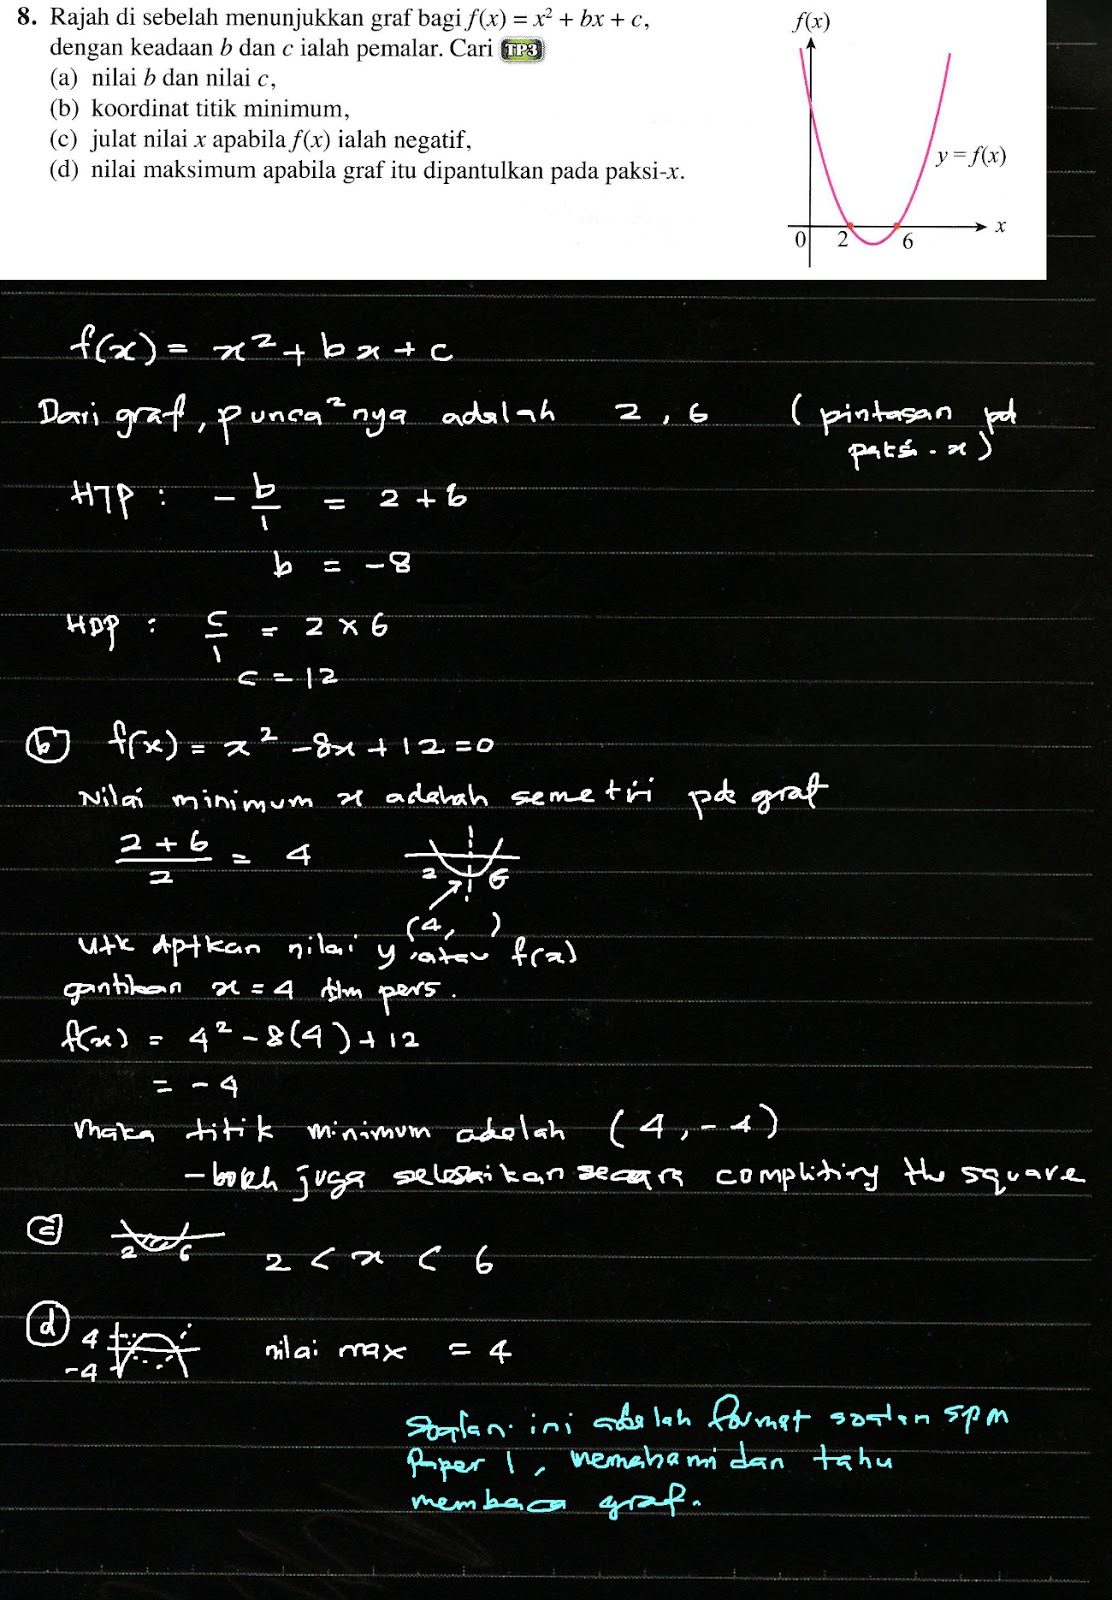 8. Rajah di sebelah menunjukkan graf bagi f(x) = x² + bx + c,
dengan keadaan b dan c ialah pemalar. Cari TP3
(a) nilai b dan nilai c,
(b) koordinat titik minimum,
(c) julat nilai x apabila f(x) ialah negatif,
(d) nilai maksimum apabila graf itu dipantulkan pada paksi-x.
f(x)
y = f(x)
x
0 2 6
f(x) = x² + bx + c
Dari graf, punca²nya adalah 2, 6 (pintasan pd
paksi-x)
HTP : -b/1 = 2 + 6
b = -8
HDP : c/1 = 2 × 6
c = 12
(b) f(x) = x² - 8x + 12 = 0
Nilai minimum x adalah semetri pd graf
(2 + 6)/2 = 4
2 6
(4, )
utk dptkan nilai y atau f(x)
gantikan x = 4 dlm pers.
f(x) = 4² - 8(4) + 12
= -4
maka titik minimum adalah (4, -4)
- boleh juga selesaikan secara complitiry the square
(c) 2 6 2 < x < 6
(d) 4
-4
nilai max = 4
Soalan ini adalah format soalan spm
Paper 1, memahami dan tahu
membaca graf.